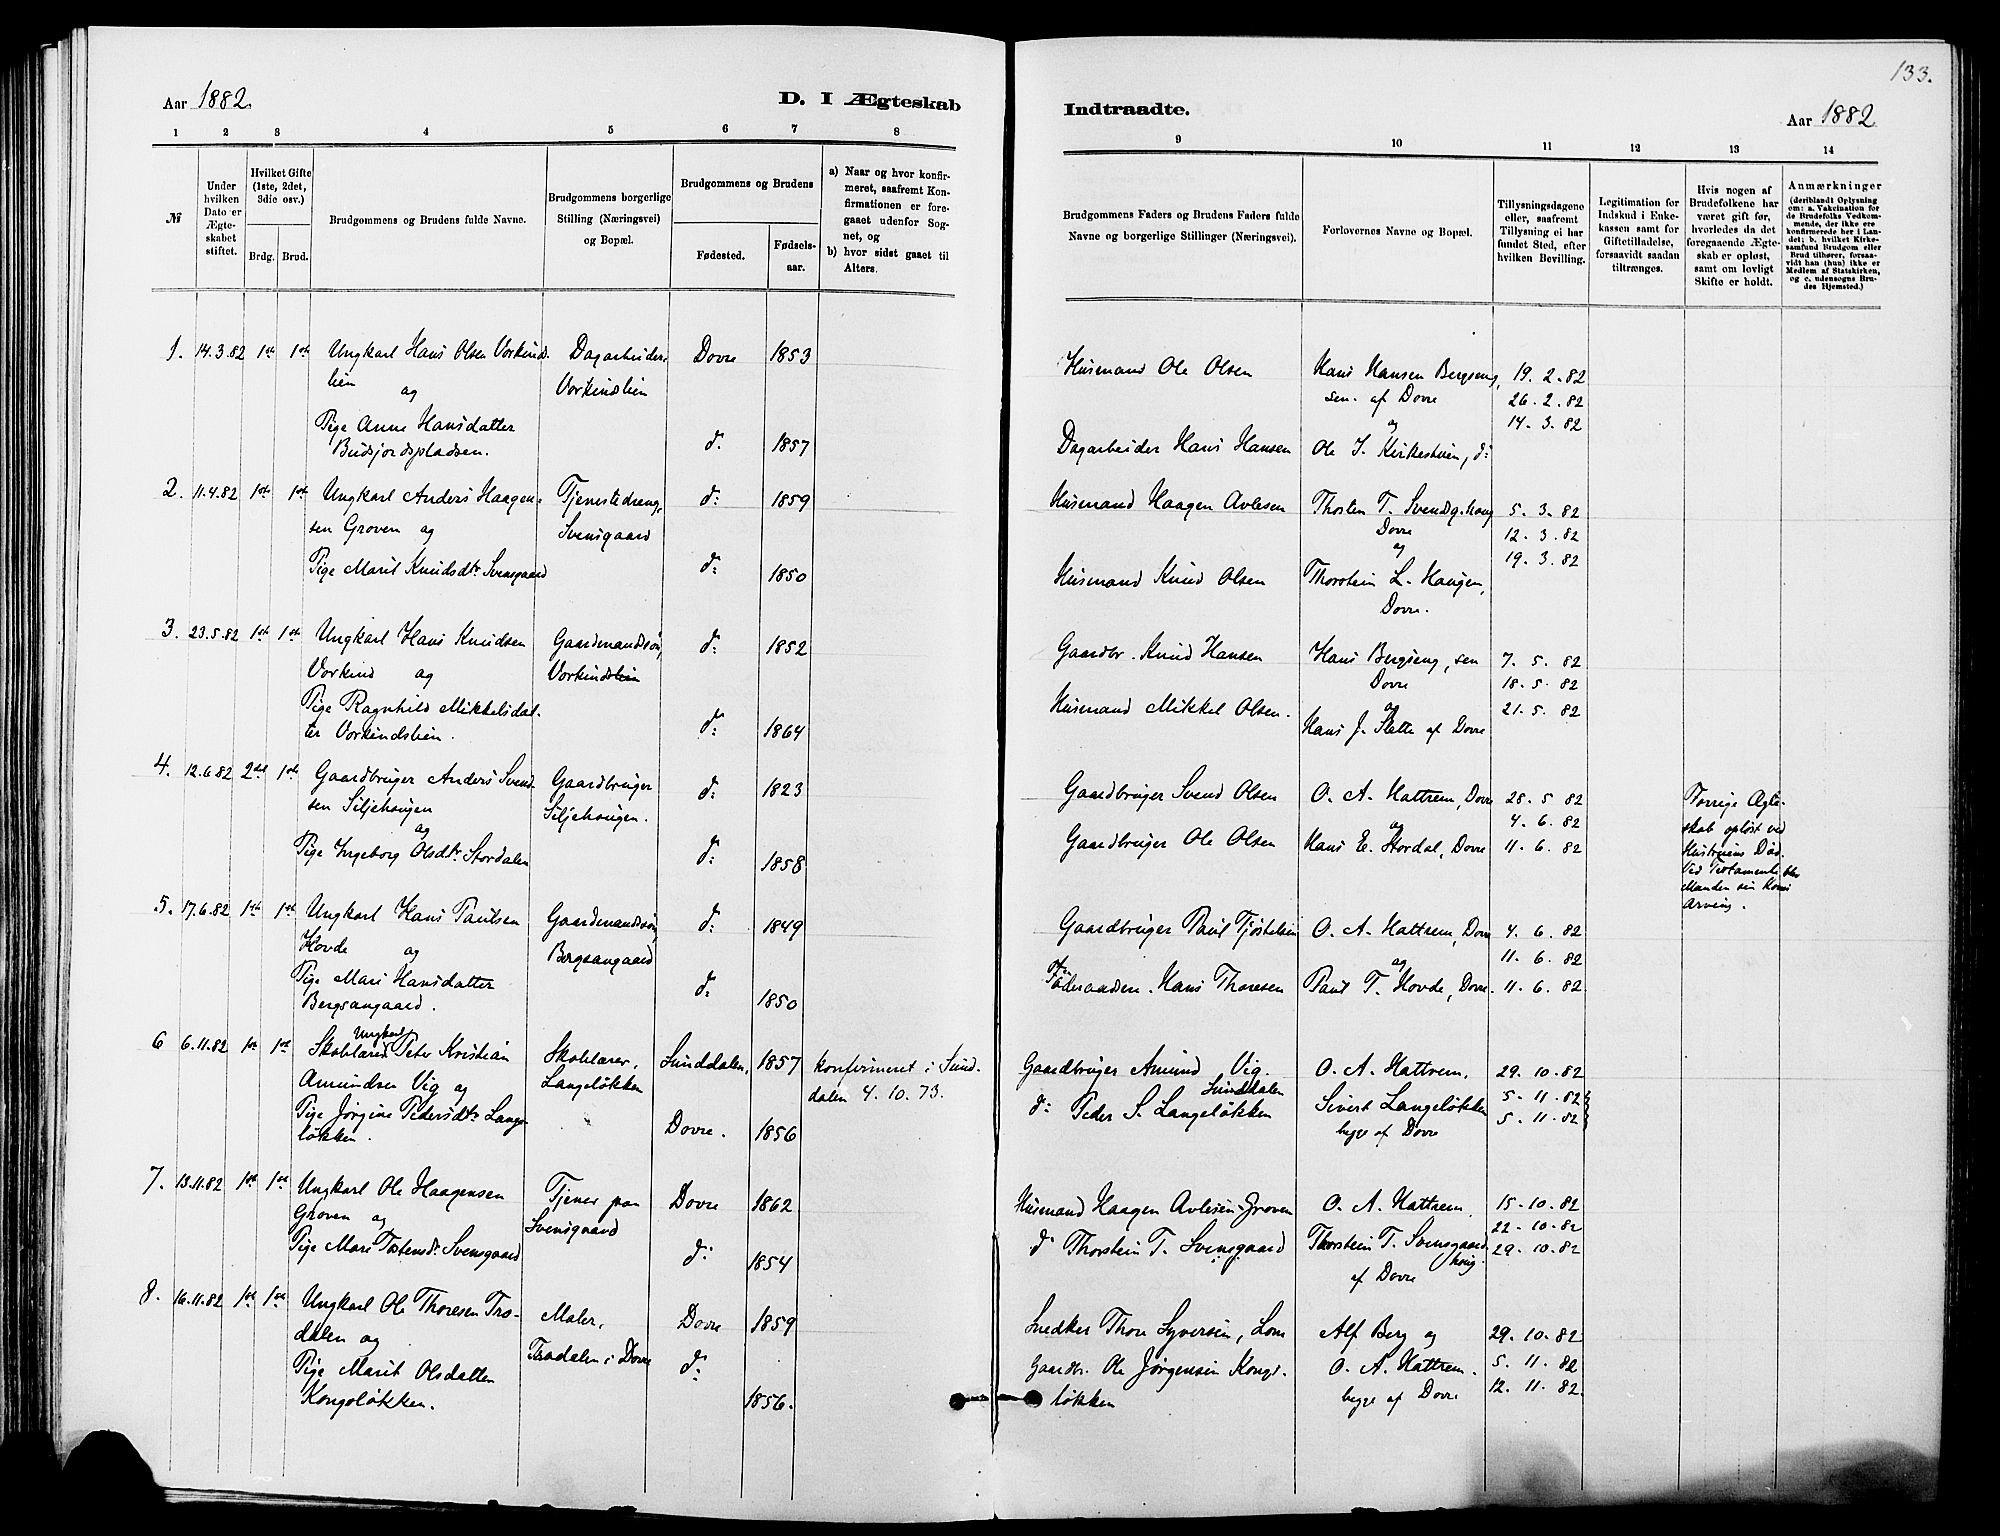 133.
Aar 1882.
D. I Ægteskab
Indtraadte.
Aar 1882
1 2 3 4 5 6 7 8
9 10 11 12 13 14
№
Under
hvilken
Dato er
Ægte-
skabet
stiftet.
Hvilket Gifte
(1ste, 2det,
3die osv.)
Brdg. Brud.
Brudgommens og Brudens fulde Navne.
Brudgommens borgerlige
Stilling (Næringsvei)
og Bopæl.
Brudgommens og Brudens
Fødested.
Fødsels-
aar.
a) Naar og hvor konfir-
meret, saafremt Kon-
firmationen er fore-
gaaet udenfor Sog-
net, og
b) hvor sidst gaaet til
Alters.
Brudgommens Faders og Brudens Faders fulde
Navne og borgerlige Stillinger (Næringsvei).
Forlovernes Navne og Bopæl.
Tillysningsdagene
eller, saafremt
Tillysning ei har
fundet Sted, efter
hvilken Bevilling.
Legitimation for
Indskud i Enke-
kassen samt for
Giftetilladelse,
forsaavidt saadan
tiltrænges.
Hvis nogen af
Brudefolkene har
været gift før,
hvorledes da det
foregaaende Ægte-
skab er opløst,
samt om lovligt
Skifte er holdt.
Anmærkninger
(deriblandt Oplysning
om: a. Vakcination for
de Brudefolks Vedkom-
mende, der ikke ere
konfirmerede her i Lan-
det; b. hvilket Kirke-
samfund Brudgom eller
Brud tilhører, forsaa-
vidt han (hun) ikke er
Medlem af Statskirken,
og c. udensogns Bru-
des Hjemsted.)
1. 14.3.82 1ste 1ste Ungkarl Hans Olsen Vorkind-
lien
og
Pige Anne Hansdatter
Budsjordspladsen.
Dagarbeider,
Vorkindslien
Dovre 1853
d. 1857
Husmand Ole Olsen
Dagarbeider Hans Hansen
Hans Hansen Bergseng,
sen. af Dovre
og
Ole J. Kirkestuen, d:
19. 2. 82
26. 2. 82
14. 3. 82
2. 11.4.82 1ste 1ste Ungkarl Anders Haagen-
sen Groven og
Pige Marit Knudsdtr Svensgaard
Tjenestedreng,
Svensgaard
d: 1859
d: 1850
Husmand Haagen Avlesen
Husmand Knud Olsen
Thosten T. Svendsg.haug
Dovre
og
Thorstein L. Haugen,
Dovre.
5. 3. 82
12. 3. 82
19. 3. 82
3. 23.5.82 1ste 1ste Ungkarl Hans Knudsen
Vorkind og
Pige Ragnhild Mikkelsdat-
ter Vorkindslien.
Gaardmandssøn,
Vorkindslien
d: 1852
d: 1864
Gaardbr. Knud Hansen
Husmand Mikkel Olsen.
Hans Bergseng, sen
Dovre
og
Hans J. Slette af Dovre
7. 5. 82
18. 5. 82
21. 5. 82
4. 12.6.82 2det 1ste Gaardbruger Anders Svend-
sen Siljehaugen
og
Pige Ingeborg Olsdtr Stordalen
Gaardbruger
Siljehaugen.
d: 1823
d: 1858
Gaardbruger Svend Olsen
Gaardbruger Ole Olsen
O. A. Hattrem, Dovre
og
Hans E. Stordal, Dovre
28. 5. 82
4. 6. 82
11. 6. 82
Forrige Ægte-
skab opløst ved
Hustruens Død.
Ved Testamente blev
Manden sin Kones
Arving.
5. 17.6.82 1ste 1ste Ungkarl Hans Paulsen
Hovde og
Pige Mari Hansdatter
Bergsangaard.
Gaardmandssøn,
Bergsangaard
d: 1849
d: 1850
Gaardbruger Paul Tjøstelsen
Hans Thoresen
O. A. Hattrem, Dovre
og
Paul T. Hovde, Dovre.
4. 6. 82
11. 6. 82
11. 6. 82.
6 6.11.82 1ste 1ste Ungkarl
Skolelærer Peter Kristian
Amundsen Vig og
Pige Jørgine Pedersdtr Lange-
løkken.
Skolelærer,
Langeløkken
Sunddalen, 1857
Dovre. 1856
konfirmeret i Sund-
dalen 4. 10. 73.
Gaardbruger Amund Vig.
Sunddalen
d: Peder S. Langeløkken
O. A. Hattrem.
Sivert Langeløkken
begge af Dovre
29. 10. 82
5. 11. 82
5. 11. 82
7. 13.11.82 1ste 1ste Ungkarl Ole Haagensen
Groven og
Pige Mari Tostensdr Svensgaard
Tjener paa
Svensgaard
Dovre 1862
d: 1854
Husmand Haagen Avlesen Groven
d: Thorstein T. Svensgaard
O. A. Hattrem.
Thorstein T. Svensgaard-
haug.
af Dovre
15. 10. 82
22. 10. 82
29. 10. 82
8. 16.11.82 1ste 1ste Ungkarl Ole Thoresen Tro-
dalen og
Pige Marit Olsdatter
Kongsløkken.
Maler,
Trodalen i Dovre
Dovre 1859
d: 1856.
Snedker Thore Syversen, Lom
Gaardbr. Ole Jørgensen Kongs-
løkken
Alf Berg og
O. A. Hattrem.
begge af Dovre
29. 10. 82
5. 11. 82
12. 11. 82.